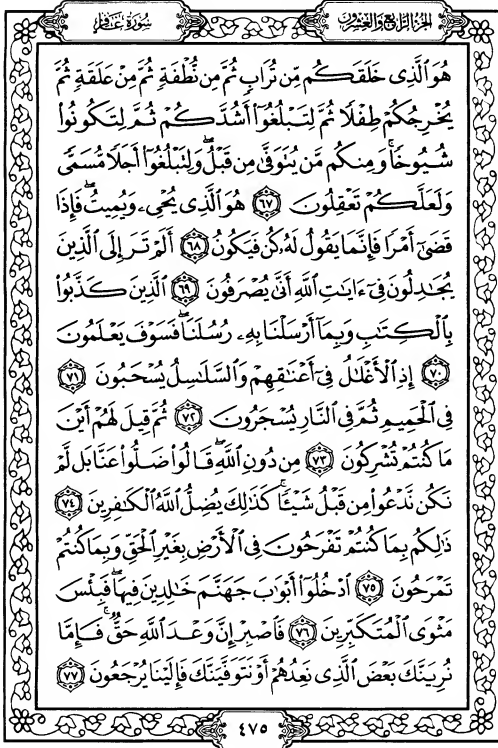 الجزء الرابع والعشرون
سورة غافر
هُوَ ٱلَّذِى خَلَقَكُم مِّن تُرَابٍ ثُمَّ مِن نُّطْفَةٍ ثُمَّ مِنْ عَلَقَةٍ ثُمَّ
يُخْرِجُكُمْ طِفْلًا ثُمَّ لِتَبْلُغُوٓا۟ أَشُدَّكُمْ ثُمَّ لِتَكُونُوا۟
شُيُوخًا ۚ وَمِنكُم مَّن يُتَوَفَّىٰ مِن قَبْلُ ۖ وَلِتَبْلُغُوٓا۟ أَجَلًا مُّسَمًّى
وَلَعَلَّكُمْ تَعْقِلُونَ ٦٧ هُوَ ٱلَّذِى يُحْىِۦ وَيُمِيتُ ۖ فَإِذَا
قَضَىٰٓ أَمْرًا فَإِنَّمَا يَقُولُ لَهُۥ كُن فَيَكُونُ ٦٨ أَلَمْ تَرَ إِلَى ٱلَّذِينَ
يُجَٰدِلُونَ فِىٓ ءَايَٰتِ ٱللَّهِ أَنَّىٰ يُصْرَفُونَ ٦٩ ٱلَّذِينَ كَذَّبُوا۟
بِٱلْكِتَٰبِ وَبِمَآ أَرْسَلْنَا بِهِۦ رُسُلَنَا ۖ فَسَوْفَ يَعْلَمُونَ
٧٠ إِذِ ٱلْأَغْلَٰلُ فِىٓ أَعْنَٰقِهِمْ وَٱلسَّلَٰسِلُ يُسْحَبُونَ ٧١
فِى ٱلْحَمِيمِ ثُمَّ فِى ٱلنَّارِ يُسْجَرُونَ ٧٢ ثُمَّ قِيلَ لَهُمْ أَيْنَ
مَا كُنتُمْ تُشْرِكُونَ ٧٣ مِن دُونِ ٱللَّهِ ۖ قَالُوا۟ ضَلُّوا۟ عَنَّا بَل لَّمْ
نَكُن نَّدْعُوا۟ مِن قَبْلُ شَيْـًٔا ۚ كَذَٰلِكَ يُضِلُّ ٱللَّهُ ٱلْكَٰفِرِينَ ٧٤
ذَٰلِكُم بِمَا كُنتُمْ تَفْرَحُونَ فِى ٱلْأَرْضِ بِغَيْرِ ٱلْحَقِّ وَبِمَا كُنتُمْ
تَمْرَحُونَ ٧٥ ٱدْخُلُوٓا۟ أَبْوَٰبَ جَهَنَّمَ خَٰلِدِينَ فِيهَا ۖ فَبِئْسَ
مَثْوَى ٱلْمُتَكَبِّرِينَ ٧٦ فَٱصْبِرْ إِنَّ وَعْدَ ٱللَّهِ حَقٌّ ۚ فَإِمَّا
نُرِيَنَّكَ بَعْضَ ٱلَّذِى نَعِدُهُمْ أَوْ نَتَوَفَّيَنَّكَ فَإِلَيْنَا يُرْجَعُونَ ٧٧
٤٧٥